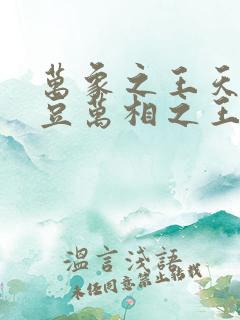 萬象之王天
豆萬相之王
温言淺語
未经同意禁止转载